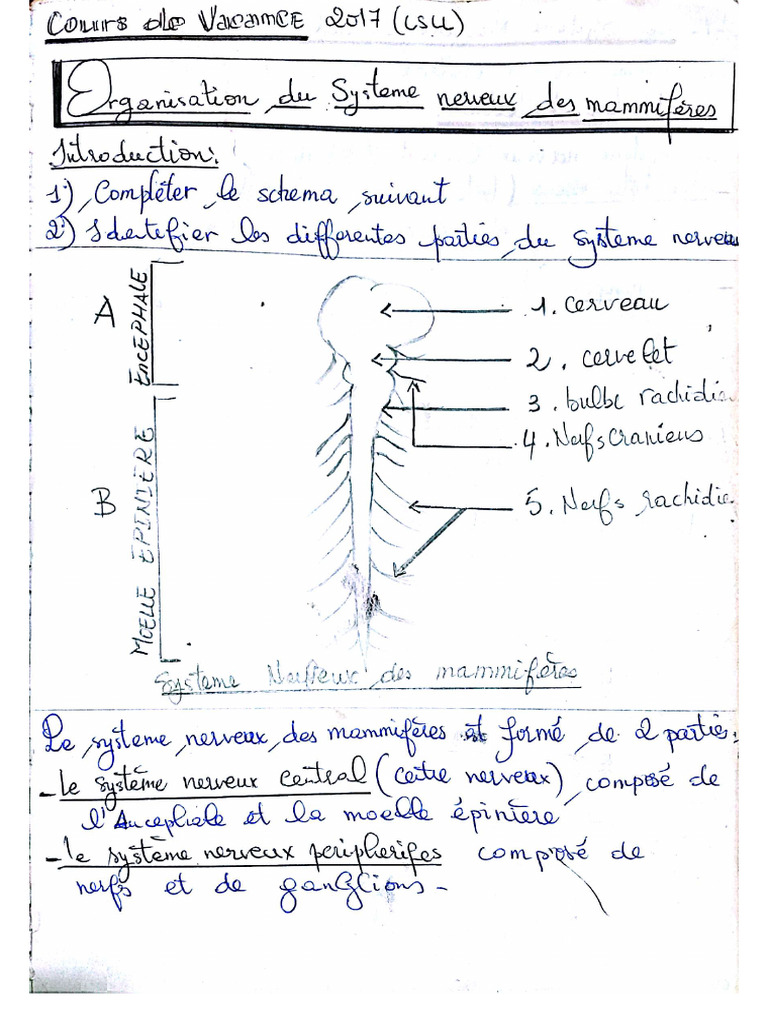 Cours de Vacance 2017 (CSU)
Organisation du Systeme nerveux des mammifères
Introduction:
1°) Compléter le schema suivant
2°) Identefier les differentes parties du systeme nerveux
A
ENCEPHALE
1. cerveau
2. cervelet
3. bulbe rachidie
4. Nerfs craniens
B
MOELLE EPINIÈRE
5. Nerfs rachidie
Systeme Nerveux des mammifères
Le systeme nerveux des mammifères est formé de 2 parties:
- le système nerveux central (cetre nerveux) composé de
l'Ancephale et la moelle épinière
- le système nerveux peripherifes composé de
nerfs et de ganglions -